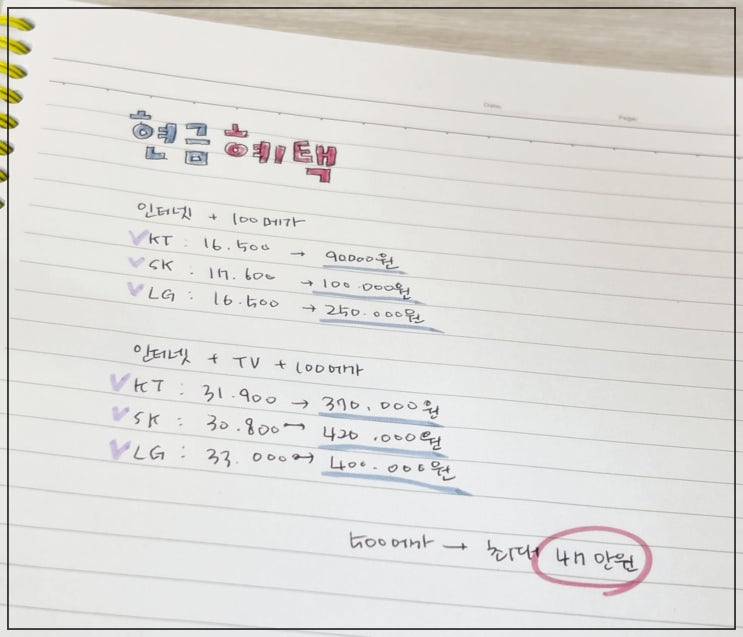 Date.
Page.
현금혜택
인터넷 + 100메가
KT : 16.500 → 90000원
SK : 17.600 → 100.000원
LG : 16.500 → 250.000원
인터넷 + TV + 100메가
KT : 31.900 → 370.000원
SK : 30.800 → 420.000원
LG : 33.000 → 400.000원
500메가 → 최대 47만원